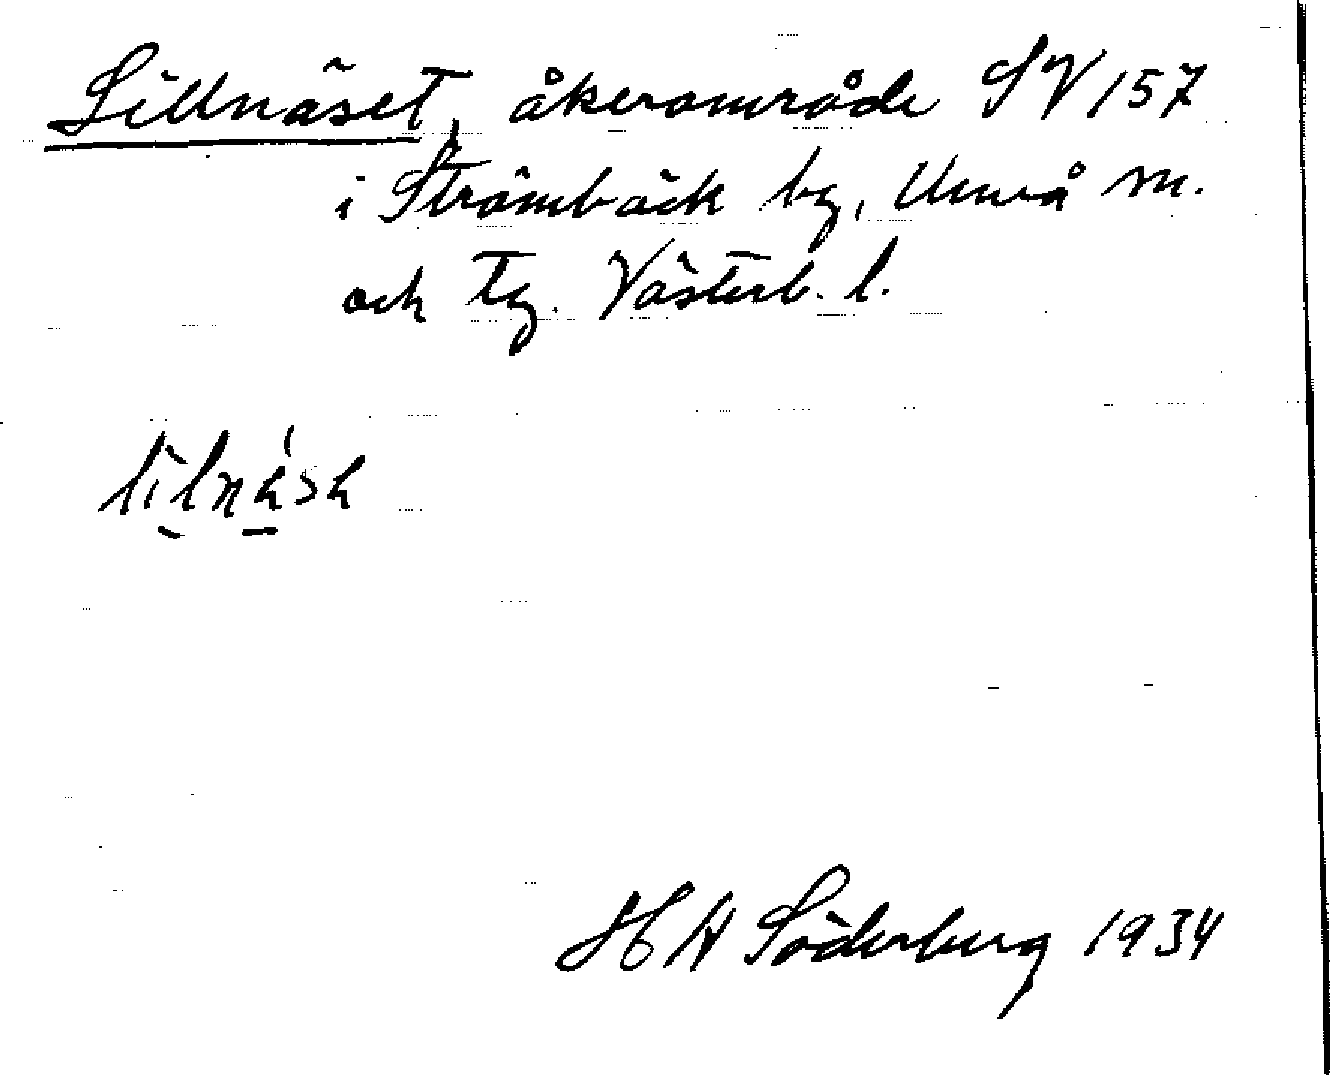 Lillnäset, åkerområde SV 157
i Strömbäck by, Umeå m.
och tg. Västerb. l.
H A Söderberg 1934